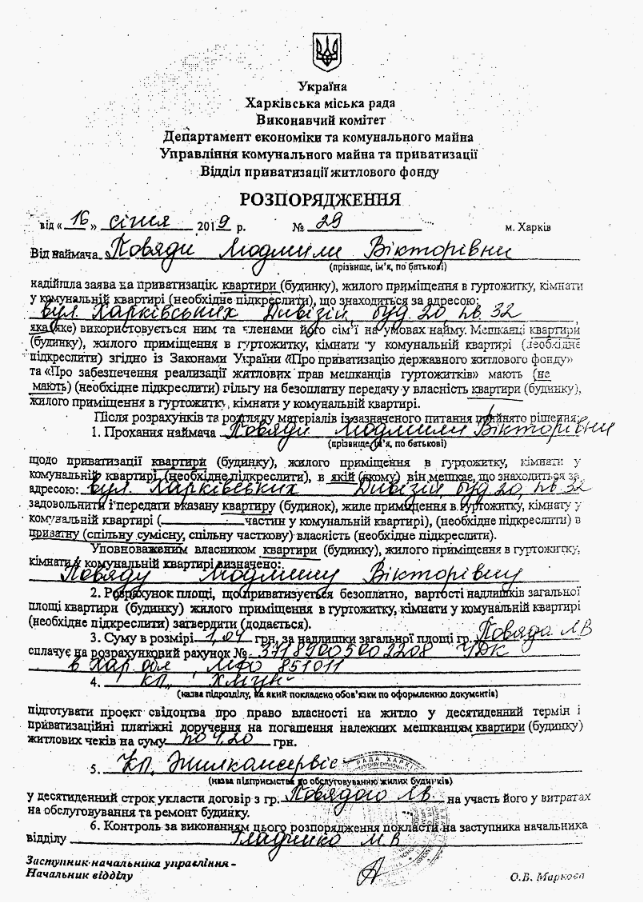 Україна
Харківська міська рада
Виконавчий комітет
Департамент економіки та комунального майна
Управління комунального майна та приватизації
Відділ приватизації житлового фонду
РОЗПОРЯДЖЕННЯ
від « 16 » січня 2019 р. № 29 м. Харків
Від наймача Повяди Людмили Вікторівни
(прізвище, ім'я, по батькові)
надійшла заява на приватизацію квартири (будинку), жилого приміщення в гуртожитку, кімнати
у комунальній квартирі (необхідне підкреслити), що знаходиться за адресою:
вул. Харківських Дивізій, буд. 20 кв. 32
яка (яке) використовується ним та членами його сім'ї на умовах найму. Мешканці квартири
(будинку), жилого приміщення в гуртожитку, кімнати у комунальній квартирі (необхідне
підкреслити) згідно із Законами України «Про приватизацію державного житлового фонду»
та «Про забезпечення реалізації житлових прав мешканців гуртожитків» мають (не
мають) (необхідне підкреслити) пільгу на безоплатну передачу у власність квартири (будинку),
жилого приміщення в гуртожитку, кімнати у комунальній квартирі.
Після розрахунків та розгляду матеріалів із зазначеного питання прийнято рішення:
1. Прохання наймача Повяди Людмили Вікторівни
(прізвище, ім'я, по батькові)
щодо приватизації квартири (будинку), жилого приміщення в гуртожитку, кімнати у
комунальній квартирі (необхідне підкреслити), в якій (якому) він мешкає, що знаходиться за
адресою: вул. Харківських Дивізій, буд 20, кв. 32
задовольнити і передати вказану квартиру (будинок), жиле приміщення в гуртожитку, кімнату у
комунальній квартирі ( частин у комунальній квартирі), (необхідне підкреслити) в
приватну (спільну сумісну, спільну часткову) власність (необхідне підкреслити).
Уповноваженим власником квартири (будинку), жилого приміщення в гуртожитку,
кімнати у комунальній квартирі визначено:
Повяду Людмилу Вікторівну
2. Розрахунок площі, що приватизується безоплатно, вартості надлишків загальної
площі квартири (будинку) жилого приміщення в гуртожитку, кімнати у комунальній квартирі
(необхідне підкреслити) затвердити (додається).
3. Суму в розмірі 1,04 грн, за надлишки загальної площі гр. Повяда Л В
сплачує на розрахунковий рахунок № УДК
в Хар обл МФО 851011
4. КП
(назва підрозділу, на який покладено обов'язки по оформленню документів)
підготувати проект свідоцтва про право власності на житло у десятиденний термін і
приватизаційні платіжні доручення на погашення належних мешканцям квартири (будинку)
житлових чеків на суму по 4,20 грн.
5. КП Жилкомсервіс
(назва підприємства по обслуговуванню жилих будинків)
у десятиденний строк укласти договір з гр. Повядою Л.В. на участь його у витратах
на обслуговування та ремонт будинку.
6. Контроль за виконанням цього розпорядження покласти на заступника начальника
відділу М.В
Заступник начальника управління -
Начальник відділу О.В. Маркова